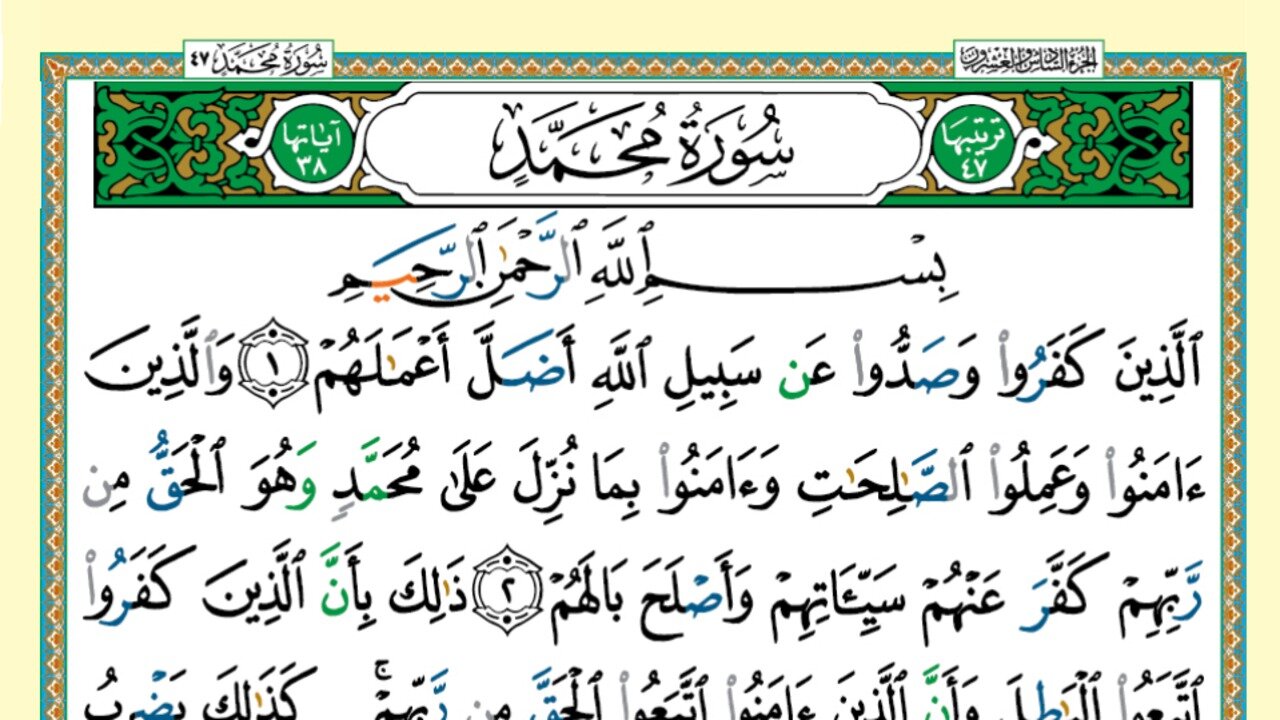 الجزء السادس والعشرون
سُورَةُ مُحَمَّدٍ ٤٧
ترتيبها ٤٧
سُورَةُ مُحَمَّدٍ
آياتها ٣٨
بِسْمِ ٱللَّهِ ٱلرَّحْمَٰنِ ٱلرَّحِيمِ
ٱلَّذِينَ كَفَرُوا۟ وَصَدُّوا۟ عَن سَبِيلِ ٱللَّهِ أَضَلَّ أَعْمَٰلَهُمْ ١ وَٱلَّذِينَ
ءَامَنُوا۟ وَعَمِلُوا۟ ٱلصَّٰلِحَٰتِ وَءَامَنُوا۟ بِمَا نُزِّلَ عَلَىٰ مُحَمَّدٍ وَهُوَ ٱلْحَقُّ مِن
رَّبِّهِمْ كَفَّرَ عَنْهُمْ سَيِّـَٔاتِهِمْ وَأَصْلَحَ بَالَهُمْ ٢ ذَٰلِكَ بِأَنَّ ٱلَّذِينَ كَفَرُوا۟
ٱتَّبَعُوا۟ ٱلْبَٰطِلَ وَأَنَّ ٱلَّذِينَ ءَامَنُوا۟ ٱتَّبَعُوا۟ ٱلْحَقَّ مِن رَّبِّهِمْ ۚ كَذَٰلِكَ يَضْرِبُ